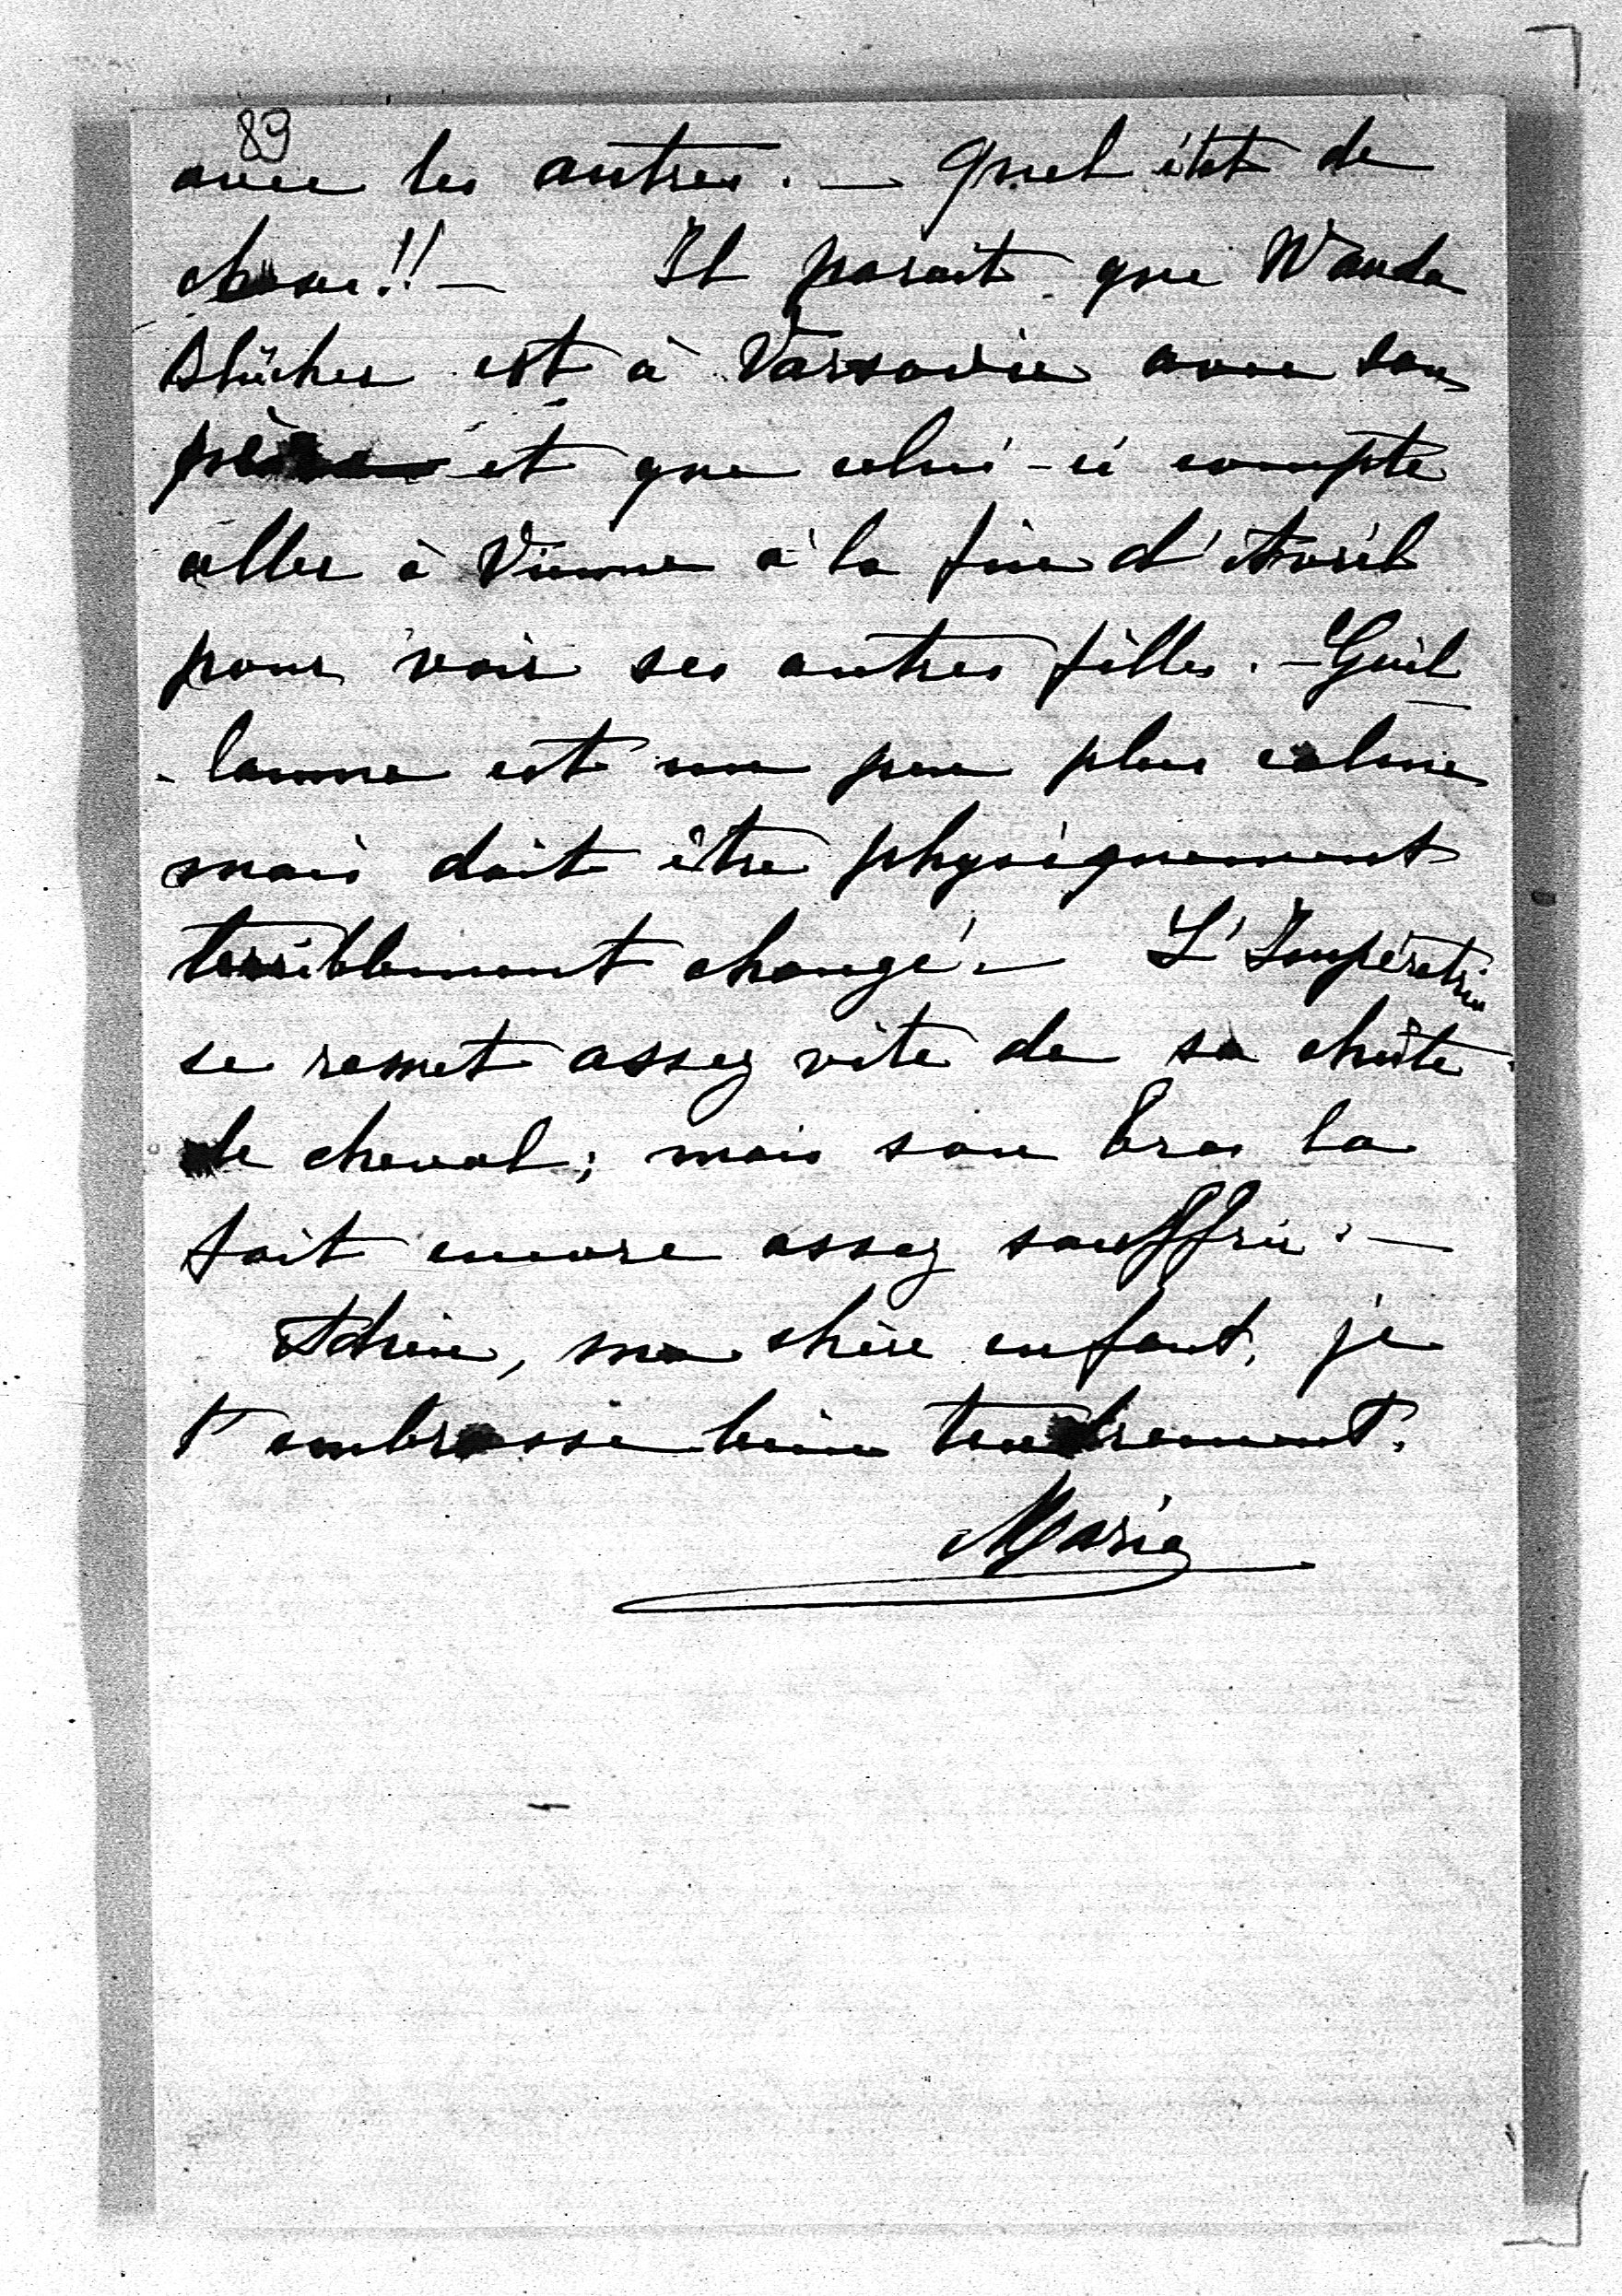 89
avec les autres. — Quel état de
chose!! — Il parait que Wanda
Blücher est à Varsovie avec son
père et que celui-ci compte
aller à Vienne à la fin d'Avril
pour voir ses autres filles. — Guil
-laume est un peu plus calme
mais doit être physiquement
terriblement changé. — L'Impératrice
se remet assez vite de sa chûte
de cheval; mais son bras la
fait encore assez souffrir. —
Adieu, ma chère enfant, je
t'embrasse bien tendrement.
Marie